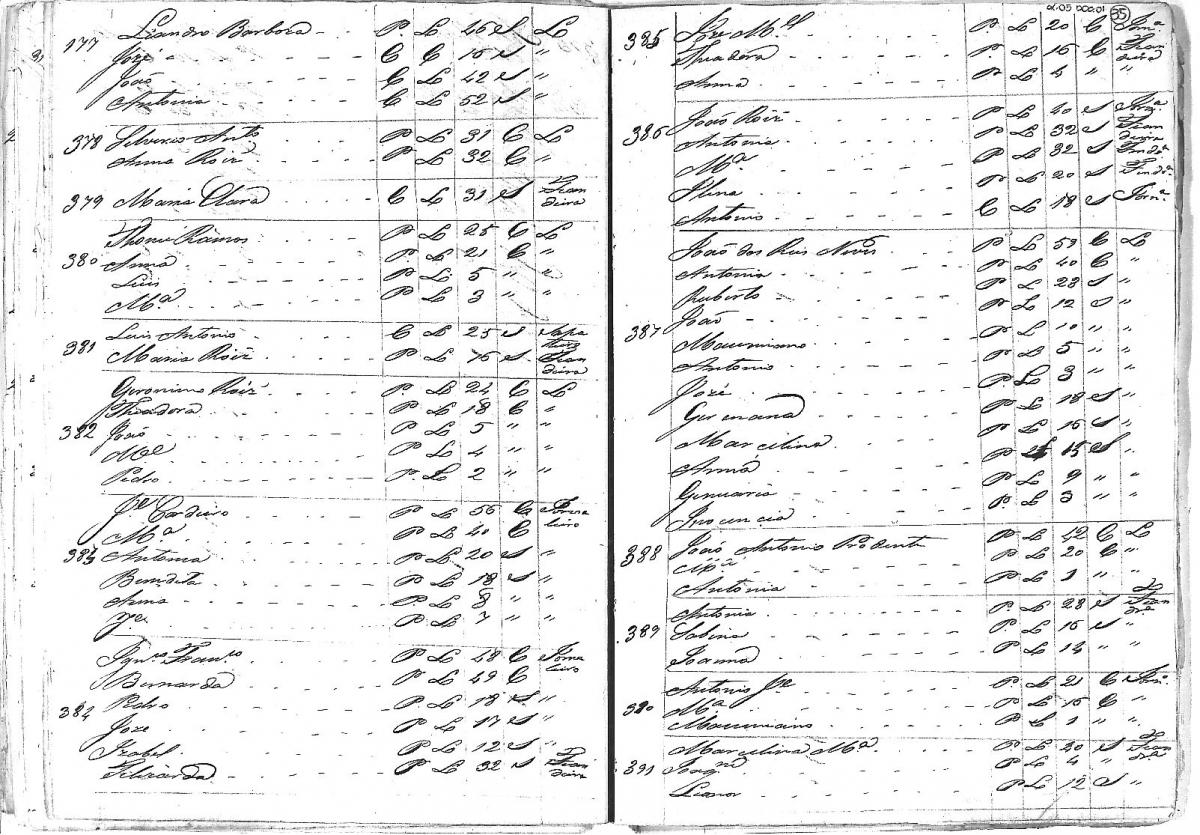 177 Leandro Barboza P. L 46 S L
José C C 16 S "
João C L 42 S "
Antonia C L 52 S "
378 Silverio Antº P. L 31 C L
Anna Roiz P. L 32 C "
379 Maria Clara C L 31 S Fian
deira
Thome Ramos P L 25 C L
380 Anna P L 21 C "
Luis P L 5 " "
Mª P L 3 " "
Luis Antonio C L 25 S Sapa
teiro
381 Maria Roiz P L 16 S Fian
deira
Geronimo Roiz P. L 24 C L
Theadora P L 18 C "
382 João P L 5 " "
Mel P L 4 " "
Pedro P. L 2 " "
Je Cordeiro P L 56 C Jorna
leiro
Mª P L 40 C
383 Antonia P L 20 S "
Benedita P L 18 S "
Anna P L 8 " "
Je P L 7 " "
Franco P L 48 C Jorna
leiro
Bernarda P L 49 C
384 Pedro P L 18 S "
Joze P L 17 S "
Izabel P L 12 S "
P L 32 S Fian
deira
35
385 Joze Mel P. L 20 C Jorna
Theadora P. L 16 C Fian
deira
Anna P L 4 " "
386 João Roiz P L 40 S Jorna
Antonia P L 32 S Fian
deira
Mª P L 32 S
P L 20 S
Antonio C L 18 S Jorna
João dos Reis Neves P L 59 C L
Antonia P L 40 C "
Ruberto P L 28 S "
387 João P L 12 S "
Maximiano P L 10 " "
Antonio P L 5 " "
José P L 3 " "
Germana P L 18 S "
Marcelina P L 16 S "
Anna P L 15 S "
Genuaria P L 9 " "
Inocencia P. L 3 " "
388 João Antonio Prodente P L 42 C L
Mª P L 20 C "
Antonia P L 1 " "
Antonia P. L 28 S Fian
dra
389 Sabina P L 16 S "
Joanna P L 14 " "
Antonio Je P L 21 C Jorn.
390 Mª P L 15 C "
Maximiano P L 1 " "
Marcelina Mª P L 30 S Fian
dra
391 Joaqm P L 4 " "
Leanor P L 12 S "